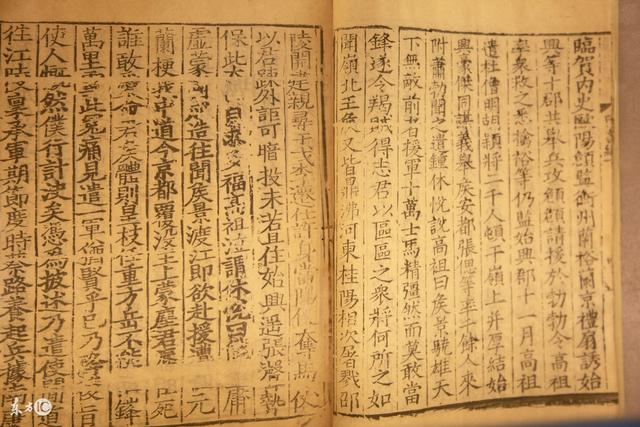 臨賀內史歐陽頠監衡州蘭裕蘭京禮扇誘始
興等十郡共舉兵攻頠頠請援於勃勃令高祖
率衆救之悉擒裕等仍監始興郡十一月高祖
遣杜僧明胡穎將二千人頓于嶺上并厚結始
興豪傑同謀義舉侯安都張偲等率千餘人來
附蕭勃聞之遣鍾休悅說高祖曰侯景驍雄天
下無敵前者援軍十萬士馬精彊然而莫敢當
鋒遂令羯賊得志君以區區之衆將何所之如
聞嶺北王侯又皆鼎沸河東桂陽相次屠戮邵
陵開建親尋干戈李遷仕許身當陽便奪馬仗
以君疎外詎可暗投未若且住始興遥張聲勢
保此太自求多福高祖泣謂休悅曰庸
虛蒙國成造往聞侯景渡江即欲赴援遭元
蘭梗我中道今京都覆沒主上蒙塵君辱死
誰敢愛命君侯體則皇枝任重方岳不能鋒
萬里雪此冤痛見遣一軍猶賢乎已乃旨
使人慨然僕行計決矣憑為披述乃遣使間道
往江陵稟承軍期節度時蔡路養起兵據南
东方IC